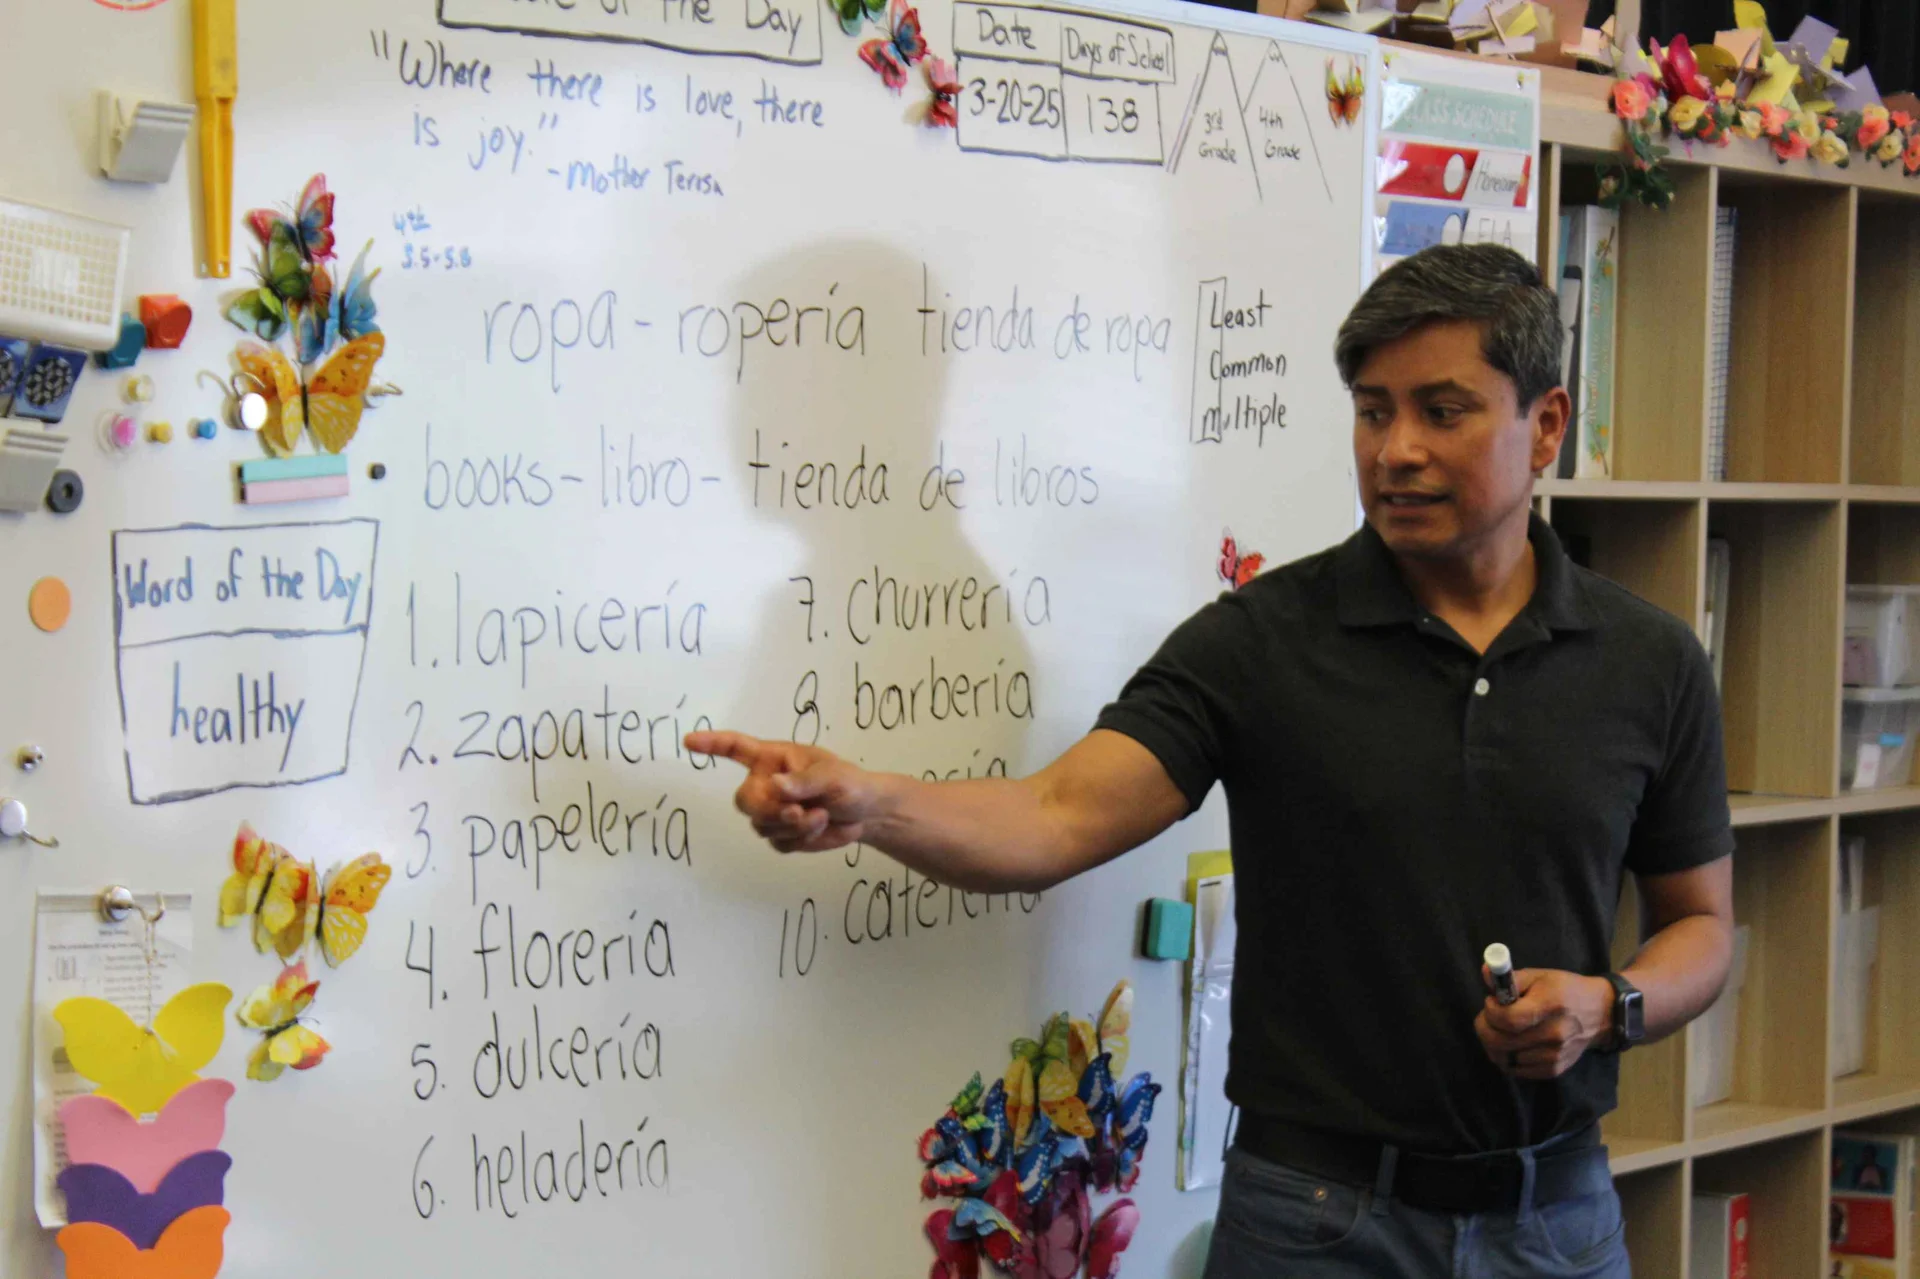 of the Day
"Where there is love, there
is joy."
-Mother Teresa
Date
3-20-25
Days of School
138
3rd
Grade
4th
Grade
CLASS SCHEDULE
Homeroom
ELA
4th
ropa - ropería tienda de ropa
books - libro - tienda de libros
Least
Common
Multiple
Word of the Day
healthy
1. lapicería
2. zapatería
3. papelería
4. florería
5. dulcería
6. heladería
7. churrería
8. barbería
10.